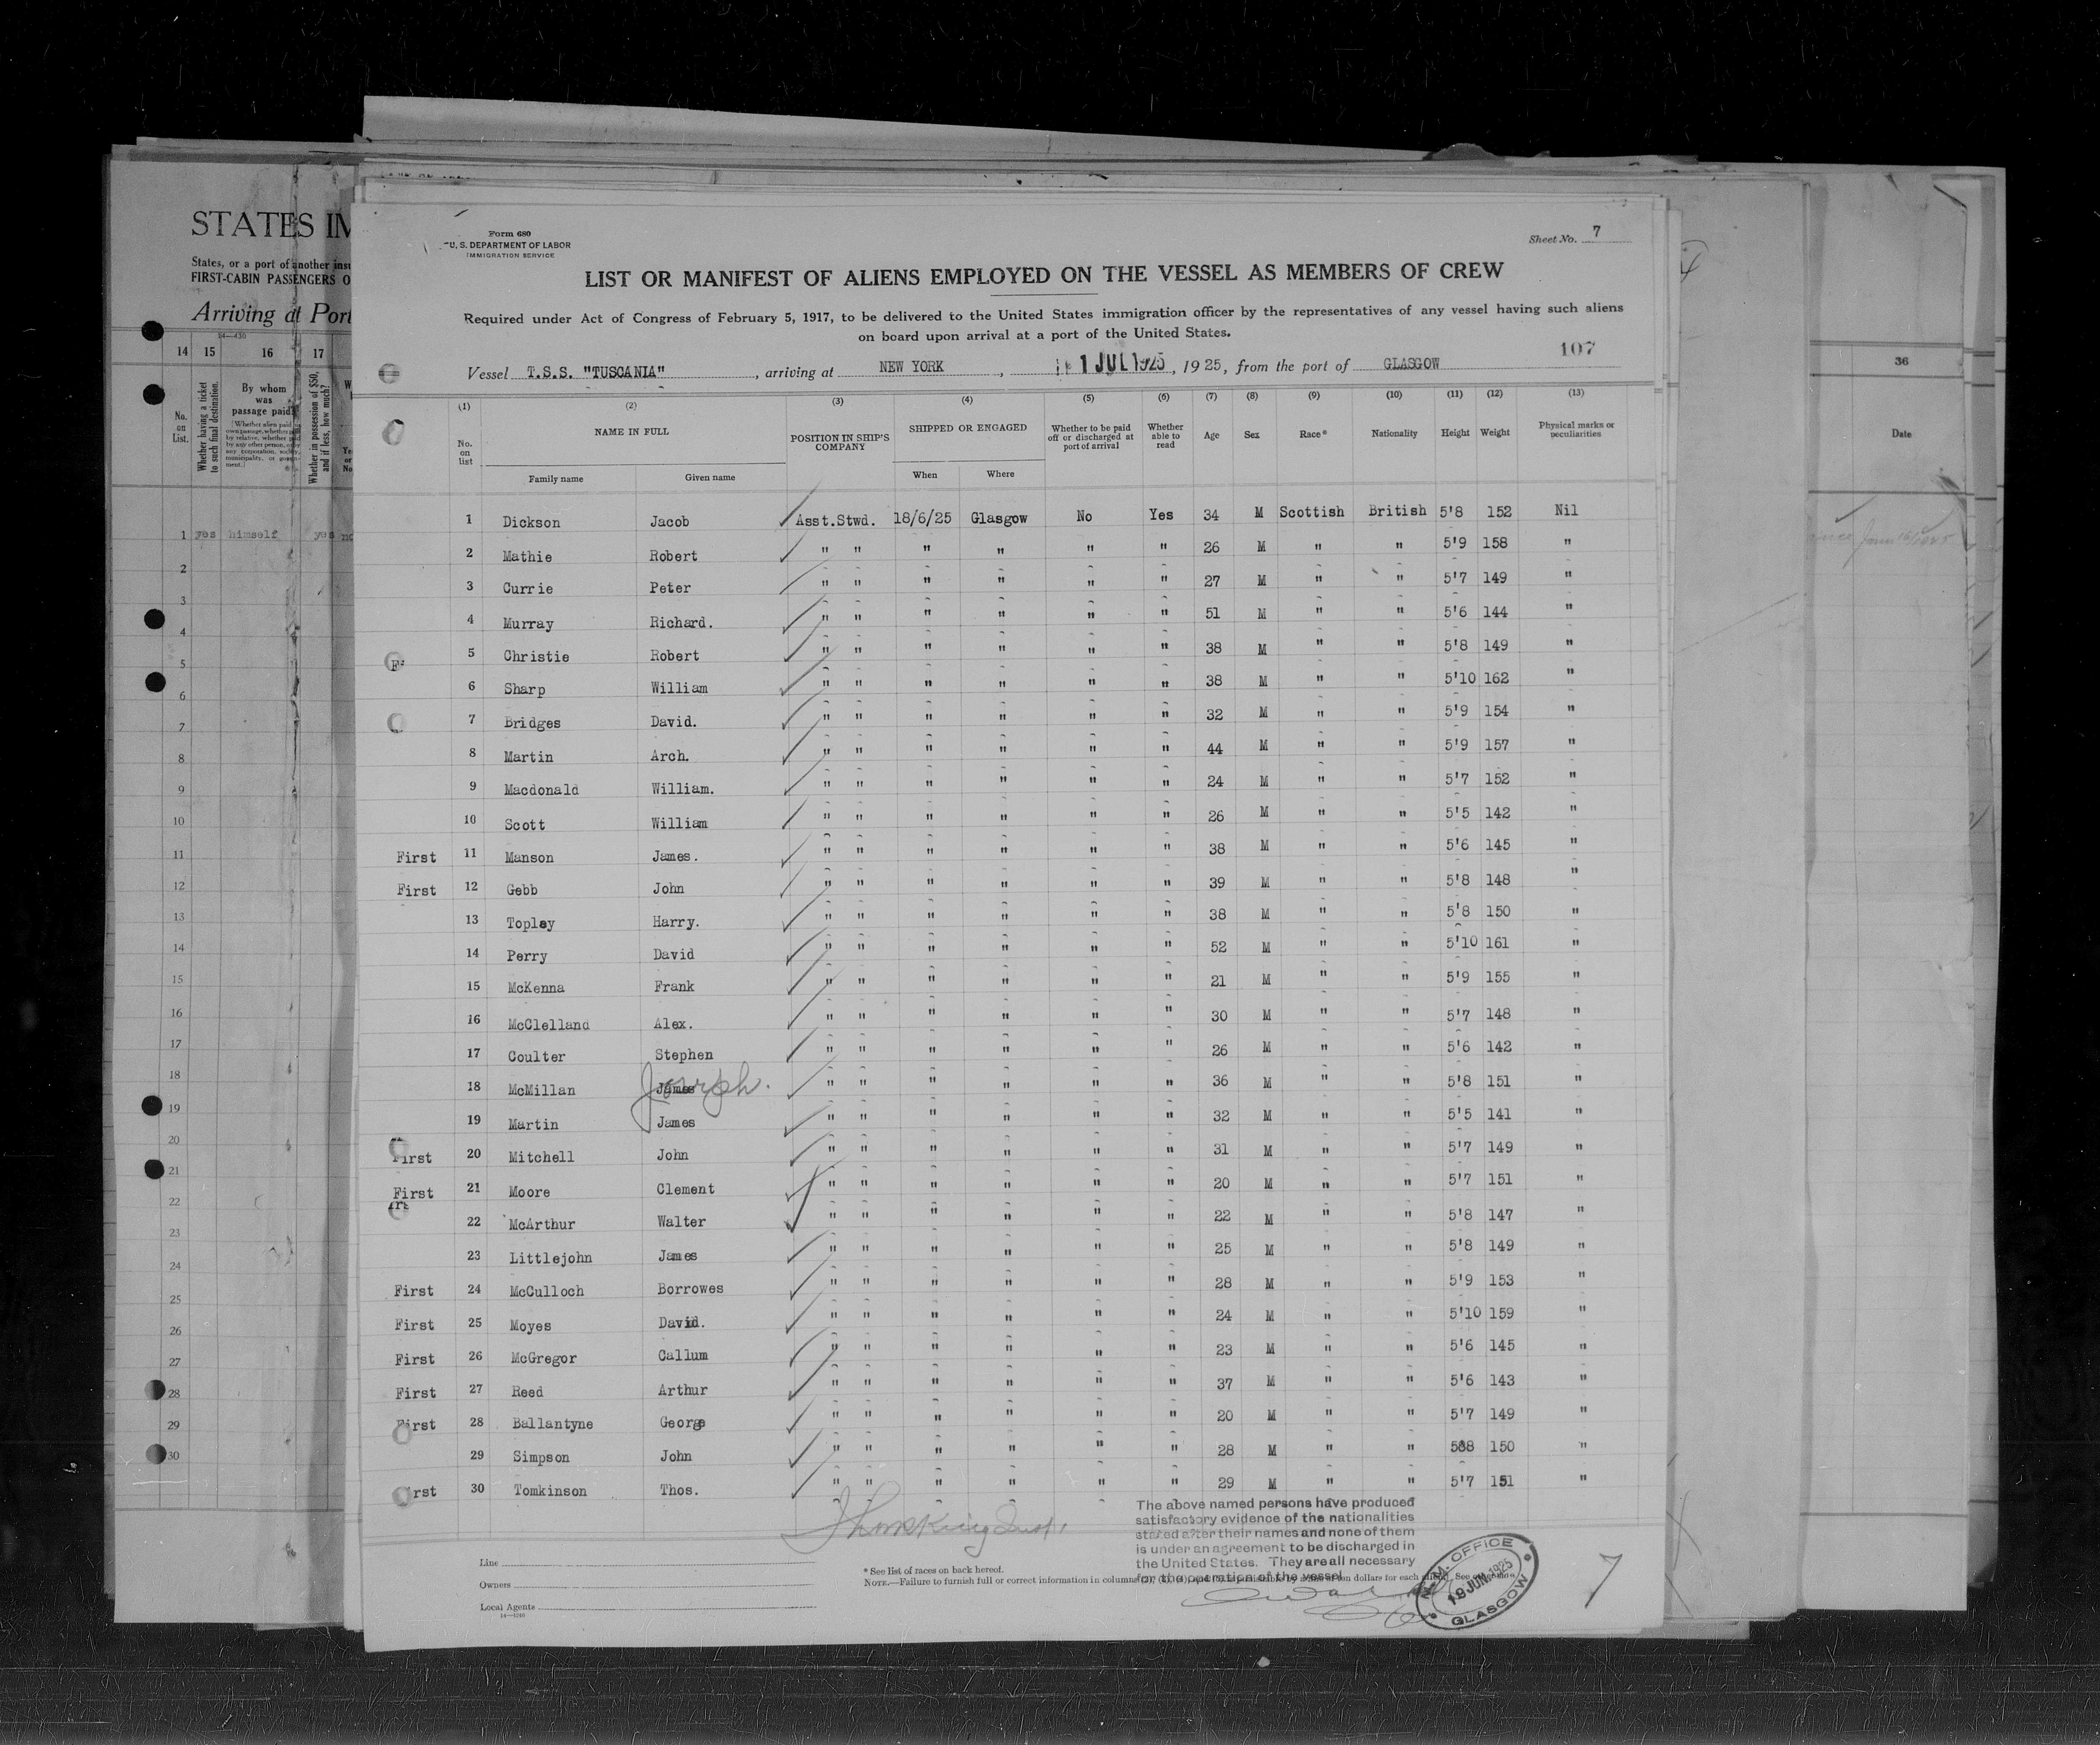 Form 680
U. S. DEPARTMENT OF LABOR
IMMIGRATION SERVICE
Sheet No. 7
LIST OR MANIFEST OF ALIENS EMPLOYED ON THE VESSEL AS MEMBERS OF CREW
Required under Act of Congress of February 5, 1917, to be delivered to the United States immigration officer by the representatives of any vessel having such aliens
on board upon arrival at a port of the United States.
107
Vessel T.S.S. "TUSCANIA", arriving at NEW YORK, 1 JUL 1925, 1925, from the port of GLASGOW
(1) (2) (3) (4) (5) (6) (7) (8) (9) (10) (11) (12) (13)
No. on list NAME IN FULL POSITION IN SHIP'S COMPANY SHIPPED OR ENGAGED Whether to be paid off or discharged at port of arrival Whether able to read Age Sex Race* Nationality Height Weight Physical marks or peculiarities
Family name Given name When Where
1 Dickson Jacob Asst.Stwd. 18/6/25 Glasgow No Yes 34 M Scottish British 5'8 152 Nil
2 Mathie Robert " " " " " " 26 M " " 5'9 158 "
3 Currie Peter " " " " " " 27 M " " 5'7 149 "
4 Murray Richard. " " " " " " 51 M " " 5'6 144 "
5 Christie Robert " " " " " " 38 M " " 5'8 149 "
6 Sharp William " " " " " " 38 M " " 5'10 162 "
7 Bridges David. " " " " " " 32 M " " 5'9 154 "
8 Martin Arch. " " " " " " 44 M " " 5'9 157 "
9 Macdonald William. " " " " " " 24 M " " 5'7 152 "
10 Scott William " " " " " " 26 M " " 5'5 142 "
First 11 Manson James. " " " " " " 38 M " " 5'6 145 "
First 12 Gebb John " " " " " " 39 M " " 5'8 148 "
13 Topley Harry. " " " " " " 38 M " " 5'8 150 "
14 Perry David " " " " " " 52 M " " 5'10 161 "
15 McKenna Frank " " " " " " 21 M " " 5'9 155 "
16 McClelland Alex. " " " " " " 30 M " " 5'7 148 "
17 Coulter Stephen " " " " " " 26 M " " 5'6 142 "
18 McMillan James Joseph. " " " " " " 36 M " " 5'8 151 "
19 Martin James " " " " " " 32 M " " 5'5 141 "
First 20 Mitchell John " " " " " " 31 M " " 5'7 149 "
First 21 Moore Clement " " " " " " 20 M " " 5'7 151 "
22 McArthur Walter " " " " " " 22 M " " 5'8 147 "
23 Littlejohn James " " " " " " 25 M " " 5'8 149 "
First 24 McCulloch Borrowes " " " " " " 28 M " " 5'9 153 "
First 25 Moyes David. " " " " " " 24 M " " 5'10 159 "
First 26 McGregor Callum " " " " " " 23 M " " 5'6 145 "
First 27 Reed Arthur " " " " " " 37 M " " 5'6 143 "
First 28 Ballantyne George " " " " " " 20 M " " 5'7 149 "
29 Simpson John " " " " " " 28 M " " 588 150 "
rst 30 Tomkinson Thos. " " " " " " 29 M " " 5'7 151 "
The above named persons have produced
satisfactory evidence of the nationalities
stated after their names and none of them
is under an agreement to be discharged in
the United States. They are all necessary
for the operation of the vessel
Line
Owners
Local Agents
* See list of races on back hereof.
NOTE.—Failure to furnish full or correct information in columns
M.M. OFFICE
19 JUN 1925
GLASGOW
7
STATES IM
States, or a port of another insu
FIRST-CABIN PASSENGERS O
Arriving at Port
14 15 16 17
No. on List.
Whether having a ticket to such final destination.
By whom was passage paid?
Whether in possession of $50, and if less, how much?
1 yes himself yes no
2
3
4
5
6
7
8
9
10
11
12
13
14
15
16
17
18
19
20
21
22
23
24
25
26
27
28
29
30
36
Date